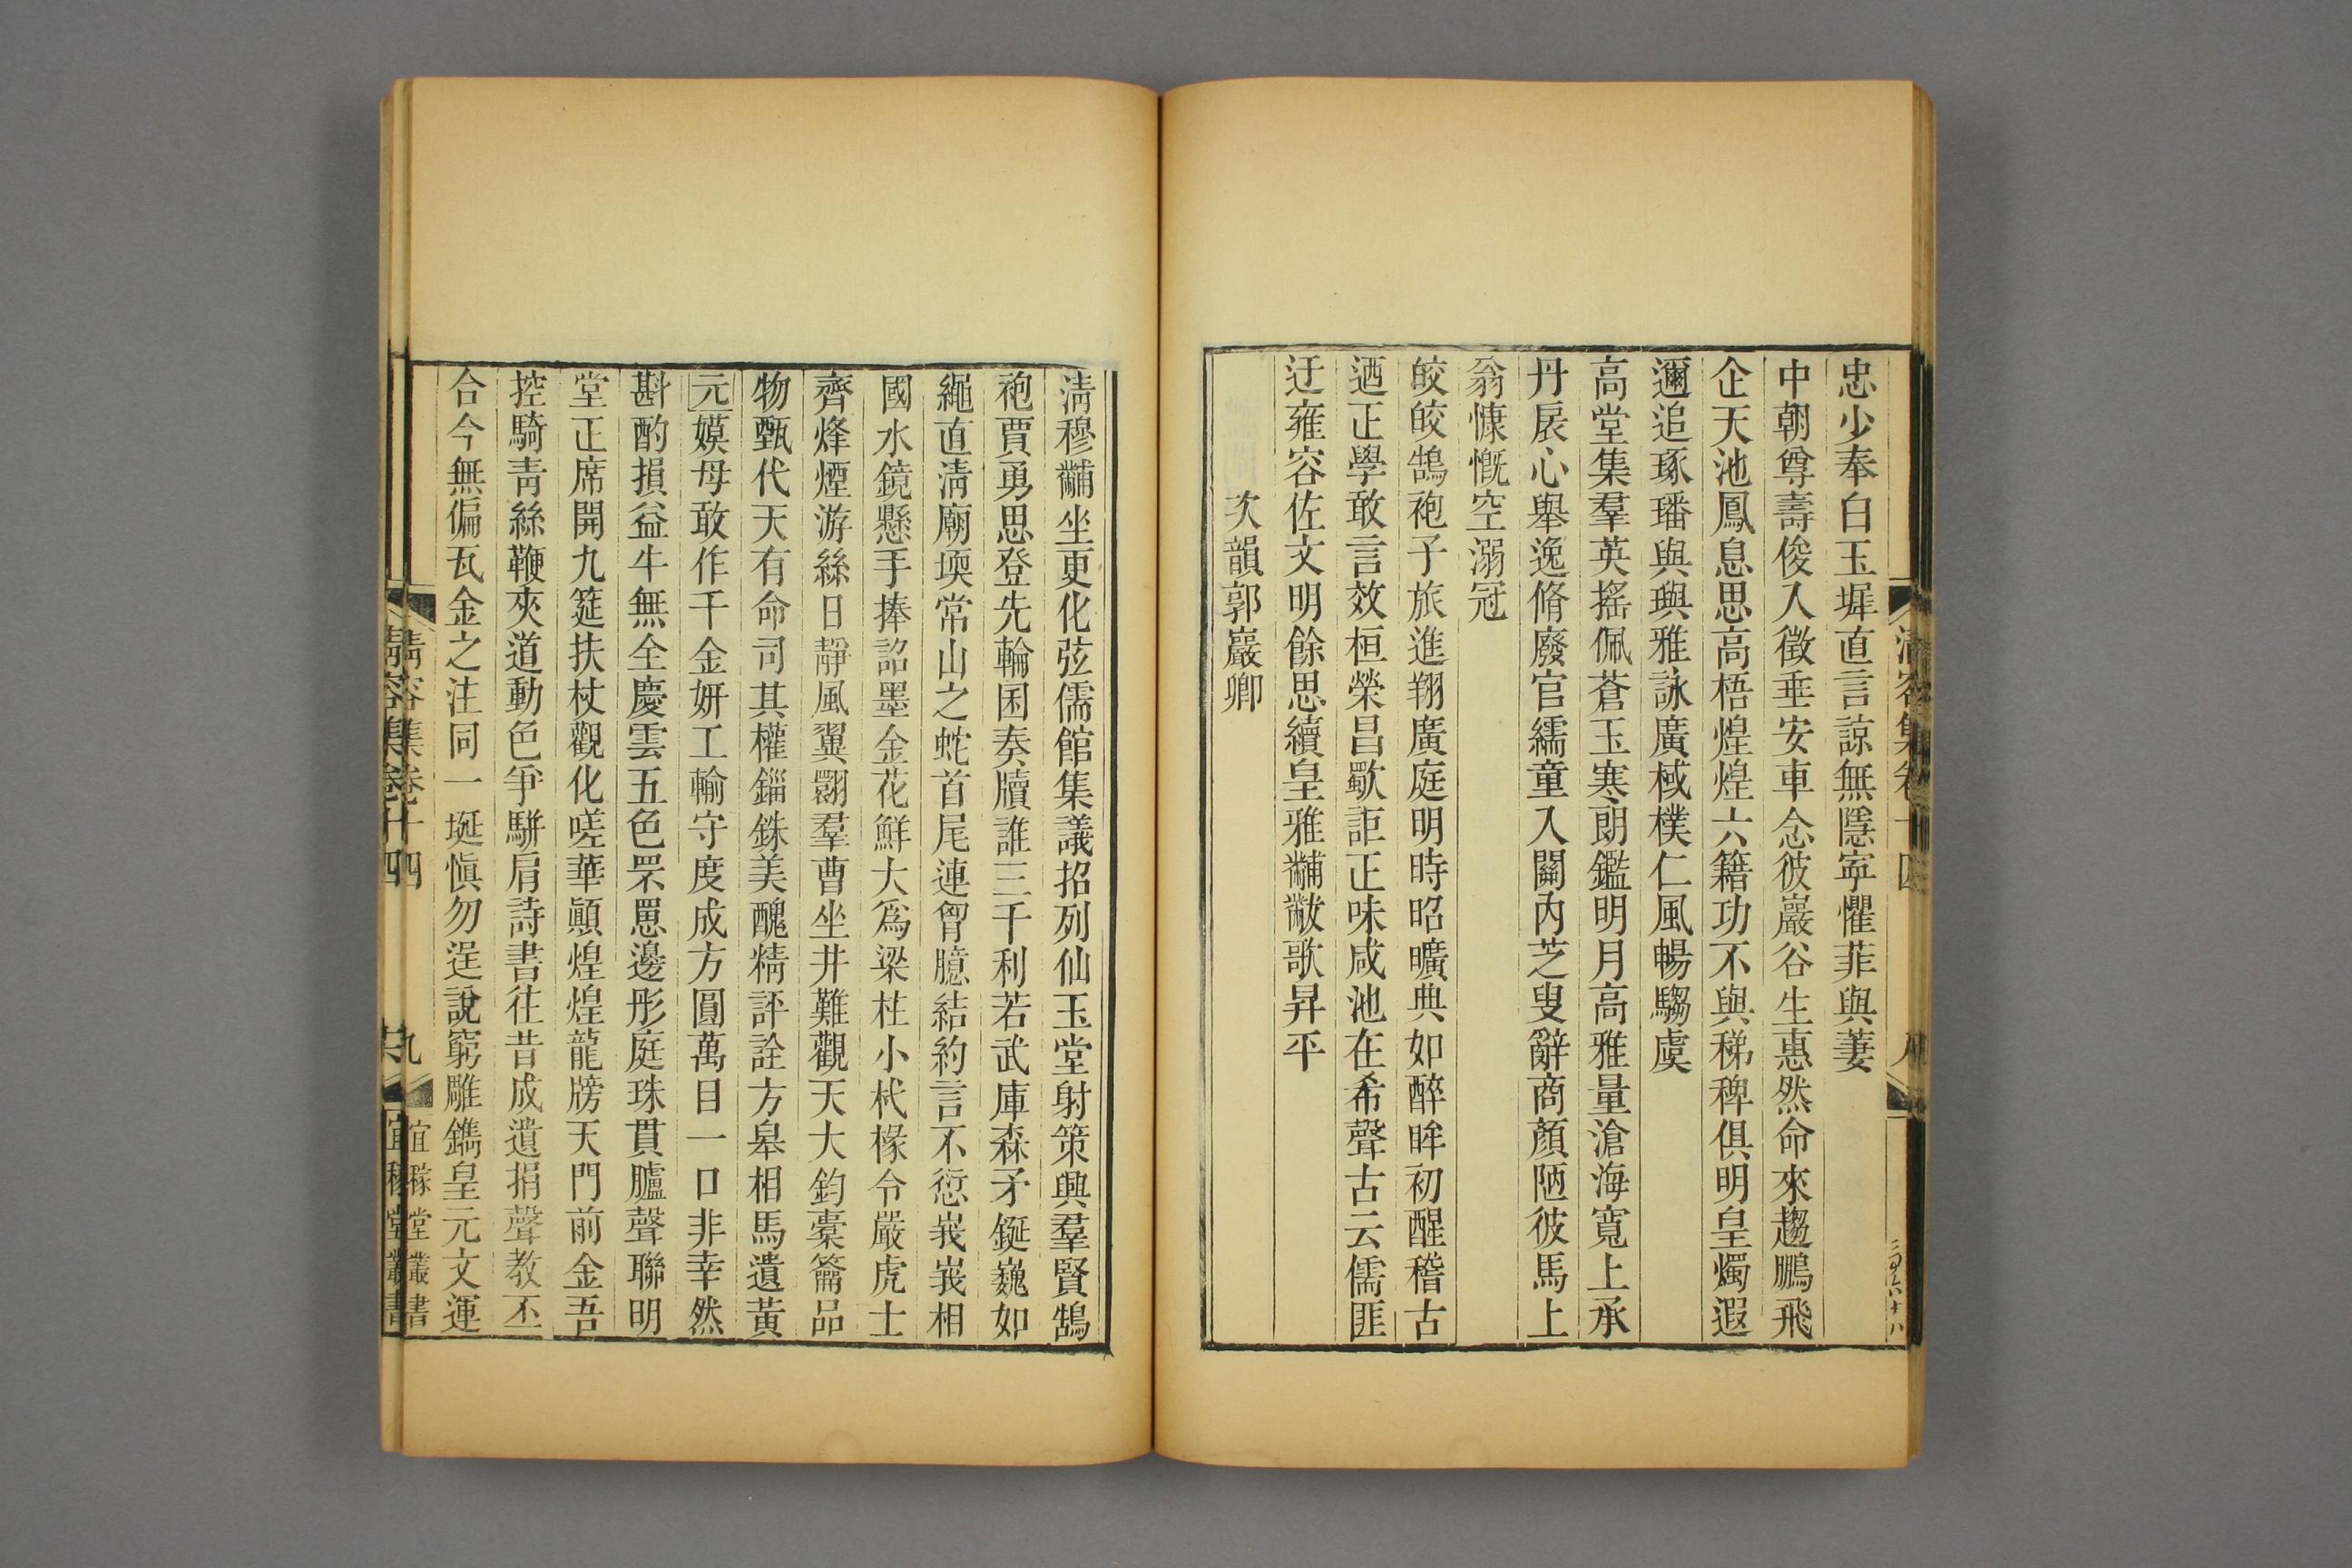 忠少奉白玉墀直言諒無隱寧懼菲與萋
中朝尊壽俊入徵垂安車念彼巖谷生惠然命來趨鵬飛
企天池鳳息思高梧煌煌六籍功不與稊稗俱明皇燭遐
邇追琢璠與璵雅詠廣棫樸仁風暢騶虞
高堂集羣英搖佩蒼玉寒朗鑑明月高雅量滄海寬上承
丹扆心舉逸脩廢官繻童入關內芝叟辭商顏陋彼馬上
翁慷慨空溺冠
皎皎鵠袍子旅進翔廣庭明時昭曠典如醉眸初醒稽古
迺正學敢言效桓榮昌歜詎正味咸池在希聲古云儒匪
迂雍容佐文明餘思續皇雅黼黻歌昇平
次韻郭巖卿
清穆黼坐更化弦儒館集議招列仙玉堂射策興羣賢鵠
袍賈勇思登先輪囷奏牘誰三千利若武庫森矛鋋巍如
繩直清廟堧常山之蛇首尾連胷臆結約言不愆峩峩相
國水鏡懸手捧詔墨金花鮮大為梁柱小杙椽令嚴虎士
齊烽煙游絲日靜風翼翾羣曹坐井難觀天大鈞橐籥品
物甄代天有命司其權錙銖美醜精評詮方臯相馬遺黃
元嫫母敢作千金妍工輸守度成方圓萬目一口非幸然
斟酌損益牛無全慶雲五色罘罳邊彤庭珠貫臚聲聯明
堂正席開九筵扶杖觀化嗟華顛煌煌龍牓天門前金吾
控騎青絲鞭夾道動色爭駢肩詩書往昔成遺捐聲教丕
合今無偏瓦金之注同一埏愼勿逞說窮雕鐫皇元文運
清容集卷十四
九
宜稼堂叢書